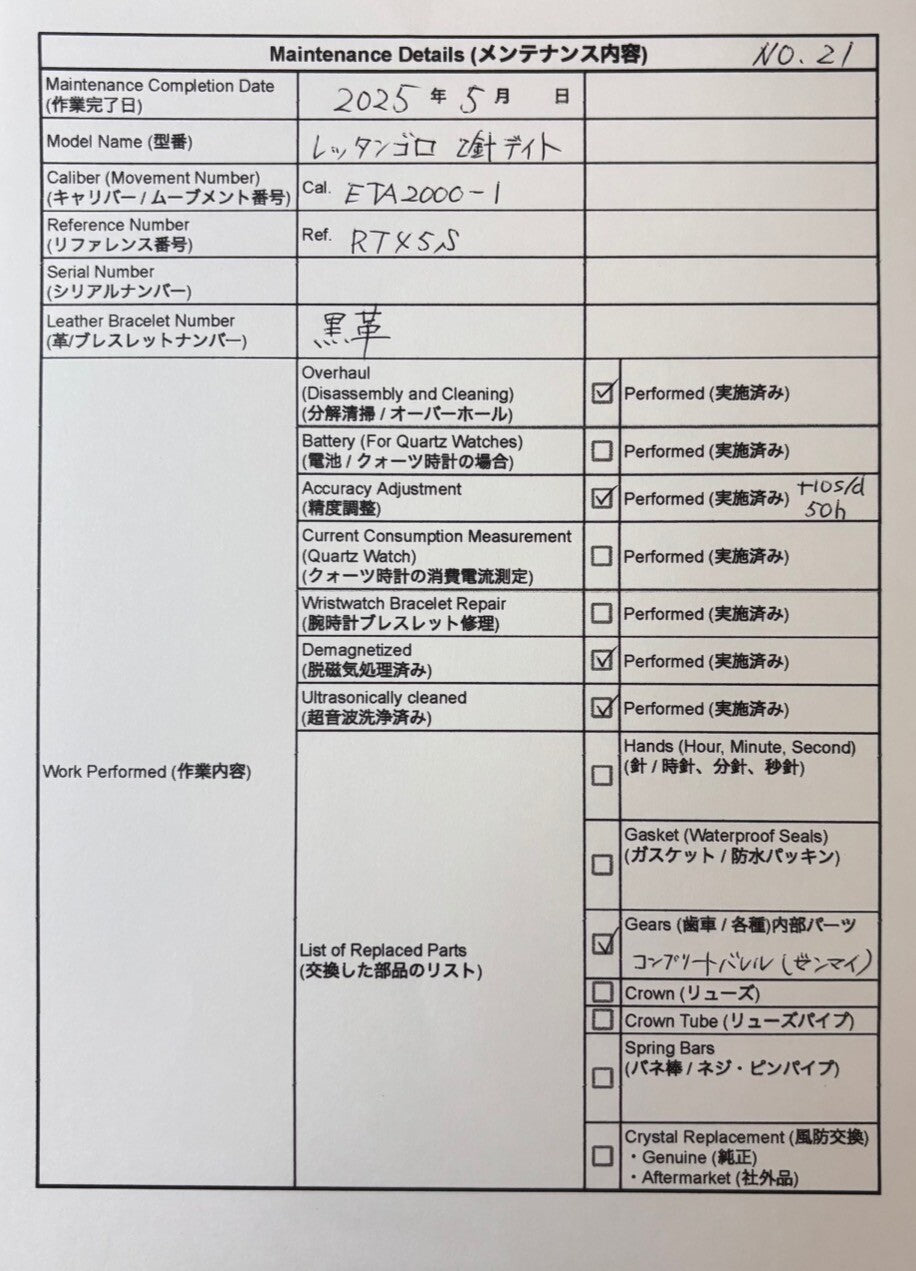 Maintenance Details (メンテナンス内容) NO. 21
Maintenance Completion Date
(作業完了日)
2025 年 5 月 日
Model Name (型番)
レッタンゴロ 2針デイト
Caliber (Movement Number)
(キャリバー / ムーブメント番号)
Cal. ETA2000-1
Reference Number
(リファレンス番号)
Ref. RT45S
Serial Number
(シリアルナンバー)
Leather Bracelet Number
(革/ブレスレットナンバー)
黒革
Work Performed (作業内容)
Overhaul
(Disassembly and Cleaning)
(分解清掃 / オーバーホール)
Performed (実施済み)
Battery (For Quartz Watches)
(電池 / クォーツ時計の場合)
Performed (実施済み)
Accuracy Adjustment
(精度調整)
Performed (実施済み) +10s/d
50h
Current Consumption Measurement
(Quartz Watch)
(クォーツ時計の消費電流測定)
Performed (実施済み)
Wristwatch Bracelet Repair
(腕時計ブレスレット修理)
Performed (実施済み)
Demagnetized
(脱磁気処理済み)
Performed (実施済み)
Ultrasonically cleaned
(超音波洗浄済み)
Performed (実施済み)
List of Replaced Parts
(交換した部品のリスト)
Hands (Hour, Minute, Second)
(針 / 時針、分針、秒針)
Gasket (Waterproof Seals)
(ガスケット / 防水パッキン)
Gears (歯車 / 各種)内部パーツ
コンプリートバレル (ゼンマイ)
Crown (リューズ)
Crown Tube (リューズパイプ)
Spring Bars
(バネ棒 / ネジ・ピンパイプ)
Crystal Replacement (風防交換)
・Genuine (純正)
・Aftermarket (社外品)